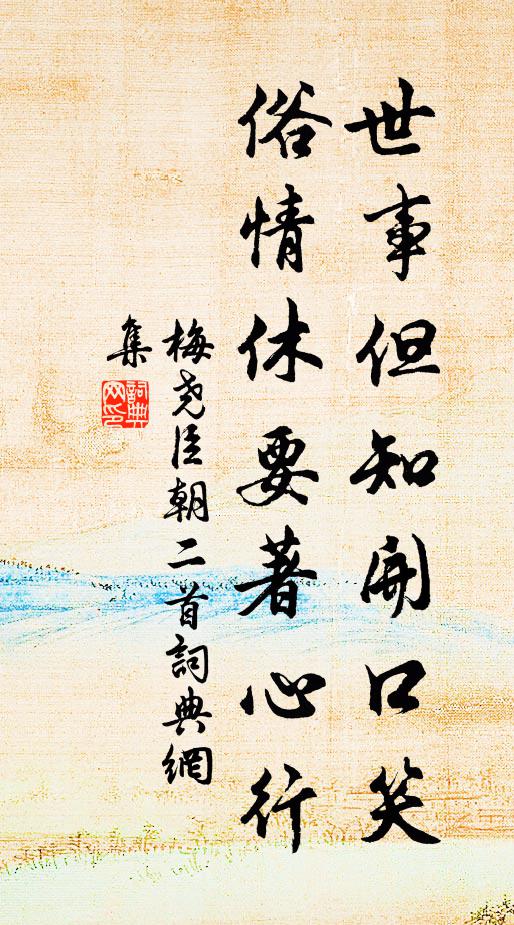 世事但知開口笑
俗情休要著心行
梅堯臣朝二首詞典網
集
詞典
网印